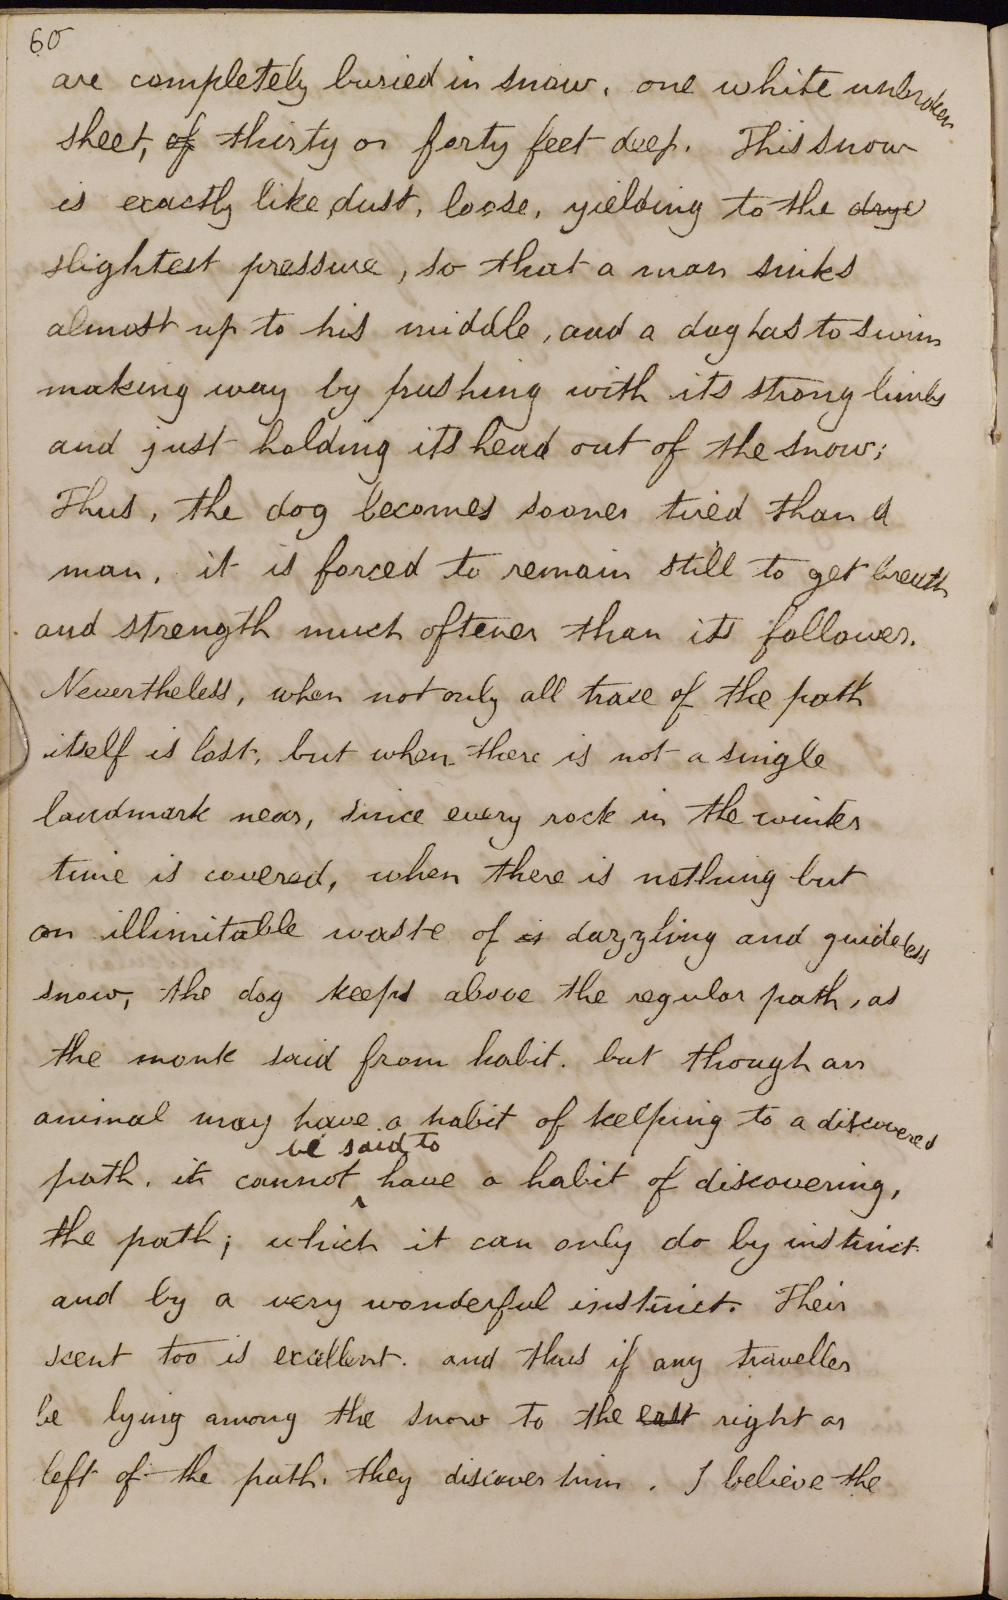 60
are completely buried in snow, one white unbroken
sheet, of thirty or forty feet deep. This snow
is exactly like dust, loose, yielding to the drye
slightest pressure, so that a man sinks
almost up to his middle, and a dog has to swim
making way by pushing with its strong limbs
and just holding its head out of the snow;
Thus, the dog becomes sooner tired than a
man, it is forced to remain still to get breath
and strength much oftener than its follower.
Nevertheless, when not only all trace of the path
itself is lost, but when there is not a single
landmark near, since every rock in the winter
time is covered, when there is nothing but
an illimitable waste of is dazzling and guideless
snow, the dog keeps above the regular path, as
the monk said from habit. but though an
animal may have a habit of keeping to a discovered
be said to
path, it cannot have a habit of discovering,
the path; which it can only do by instinct
and by a very wonderful instinct. Their
scent too is excellent. and thus if any traveller
be lying among the snow to the east right or
left of the path, they discover him. I believe the